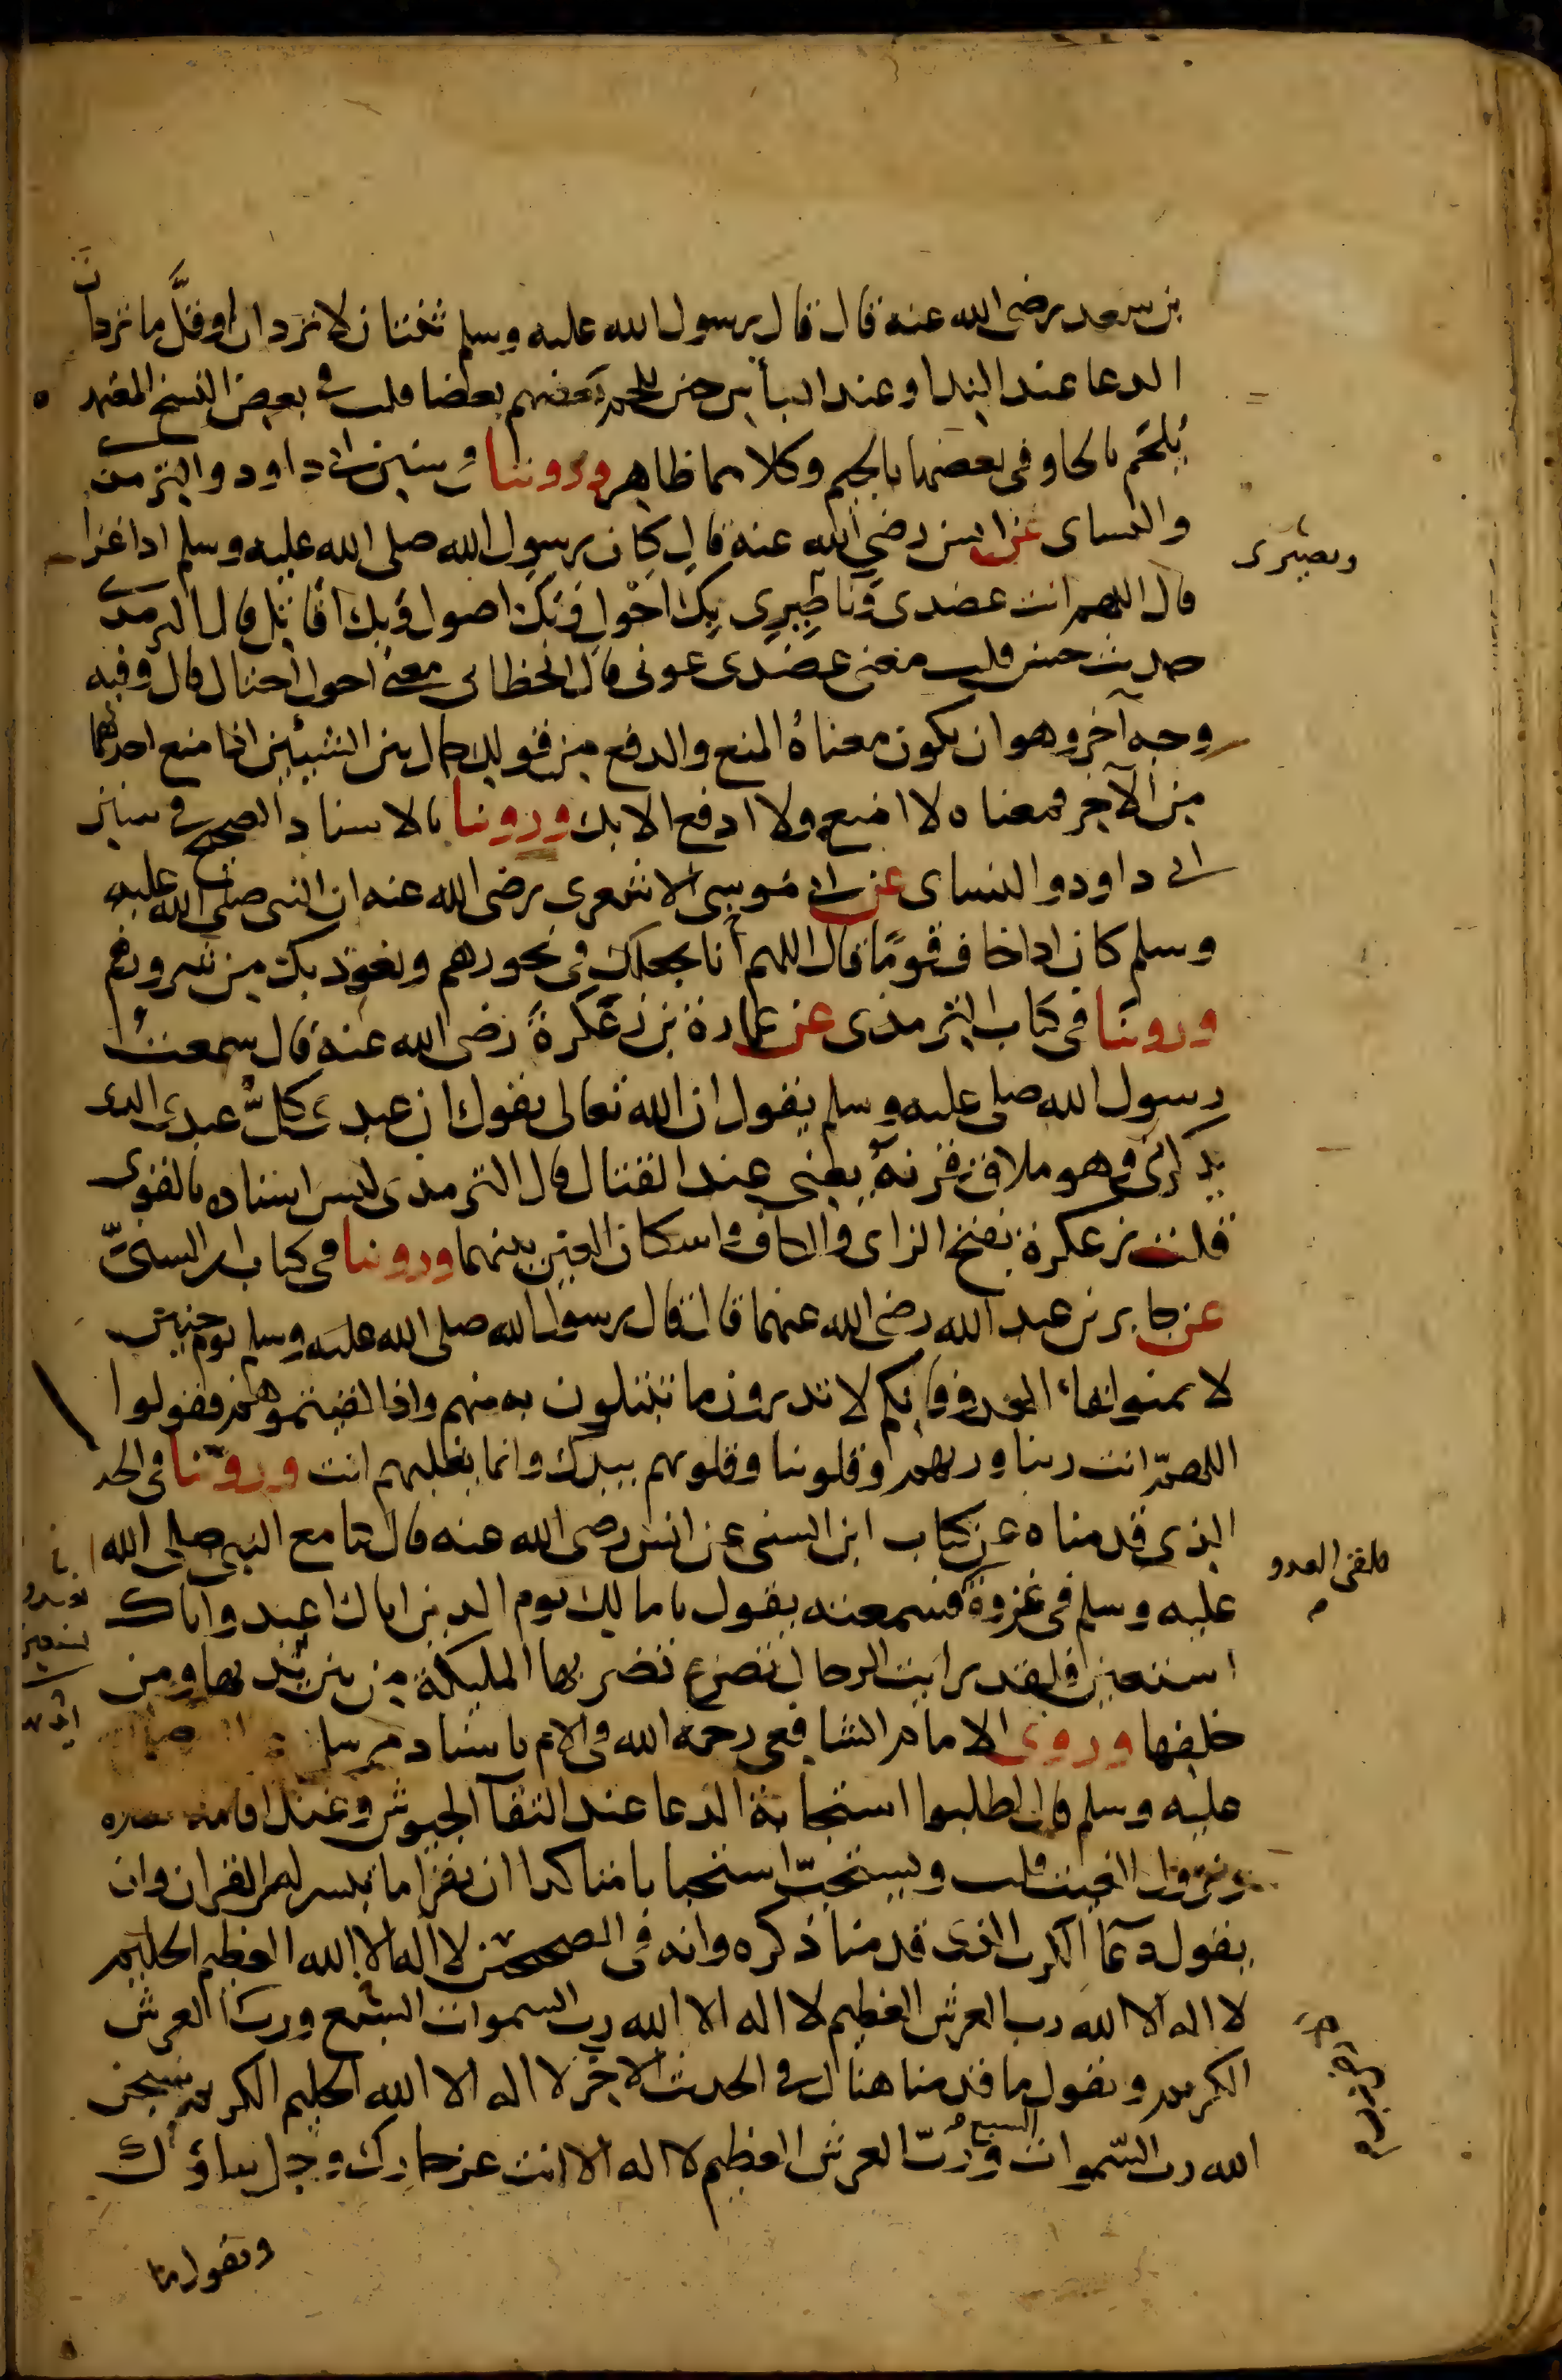 بن سعد رضى الله عنه قال قال رسول الله عليه وسلم ثنتان لا تردان او قلَّ ما تردان
الدعا عند الندا وعند البأس حين يلحم بعضهم بعضا قلت فى بعض النسخ المعتمد
يُلحَم بالحا وفى بعضها بالجيم وكلاهما ظاهر وروينا فى سنن ابى داود والترمذى
والنساى عن انس رضي الله عنه قال كان رسول الله صلى الله عليه وسلم اذا غزا
ونصيرى
قال اللهم انت عضدى وناصِيرِى بِكَ احُول وبِكَ اصول وبِكَ اقاتل قال الترمذى
حديث حسن قلت معنى عضدى عونى قال الخطابى معنى احول احتال قال وفيه
وجه آخر وهو ان يكون معناهُ المنع والدفع مِن قولك حال بين الشيئين اذا منع احدهما
من الآخر فمعناه لا امنع ولا ادفع الا بك وروينا بالاسناد الصحيح فى سنن
ابى داود والنساى عن ابى موسى الاشعرى رضى الله عنه ان النبى صلى الله عليه
وسلم كان اذا خاف قومًا قال اللهم انا نجعلك فى نحورهم ونعوذ بك من شرورهم
وروينا فى كتاب الترمذى عن عمارة بن زَعْكَرةَ رضى الله عنه قال سمعتُ
رسول الله صلى عليه وسلم يقول ان الله تعالى يقول ان عبدى كلَّ عبدى الذى
يذكرنى وهو ملاقٍ قرنهُ يعنى عند القتال قال الترمذى ليس اسناده بالقوى
قلت زعكرة بفتح الزاى والكاف واسكان العين بينهما وروينا فى كتاب ابن السنىّ
عن جابر بن عبد الله رضى الله عنهما قال قال رسول الله صلى الله عليه وسلم يوم حنين
لا تمنوا لقاء العدو فانكم لا تدرون ما تبتلون به منهم واذا لقيتموهم فقولوا
اللهمّ انت ربنا وربهم وقلوبنا وقلوبهم بيدك وانما يغلبهم انت وروينا فى الحد
الذى قدمناه عن كتاب ابن السنى عن انس رضى الله عنه قال كنا مع النبى صلى الله
فلقى العدو
عليه وسلم فى غزوة فسمعته يقول يا مالك يوم الدين اياك اعبد واياك
استعين فلقد رايت الرجال تصرع تضربها المليكة من بين يديها ومن
خلفها وروى الامام الشافعى رحمه الله فى الام باسناد مرسل
عليه وسلم قال اطلبوا استجابة الدعا عند التقآ الجيوش وعند اقامة
ونزول الغيث قلت ويستحبّ استحبابا متاكدا ان يقرا ما تيسر له من القران وان
يقول دعآ الكرب الذى قدمنا ذكره وانه فى الصحيحين لا اله الا الله العظيم الحليم
لا اله الا الله رب العرش العظيم لا اله الا الله رب السموات السبع ورب العرش
الكريم ويقول ما قدمنا هناك فى الحديث الاخر لا اله الا الله الحليم الكريم سبحن
الله رب السّموات السبع ورَبّ العرش العظيم لا اله الا انت عز جارك وجل ثناؤك
ويقول ما